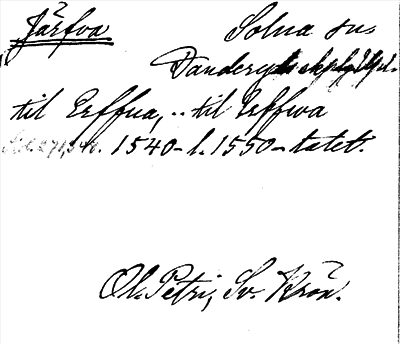 Järfva. Solna sn.
Danderyds skplg
til Erffua, .. til Erffwa
1540- l. 1550-talet.
Ol. Petri, Sv. Krön.